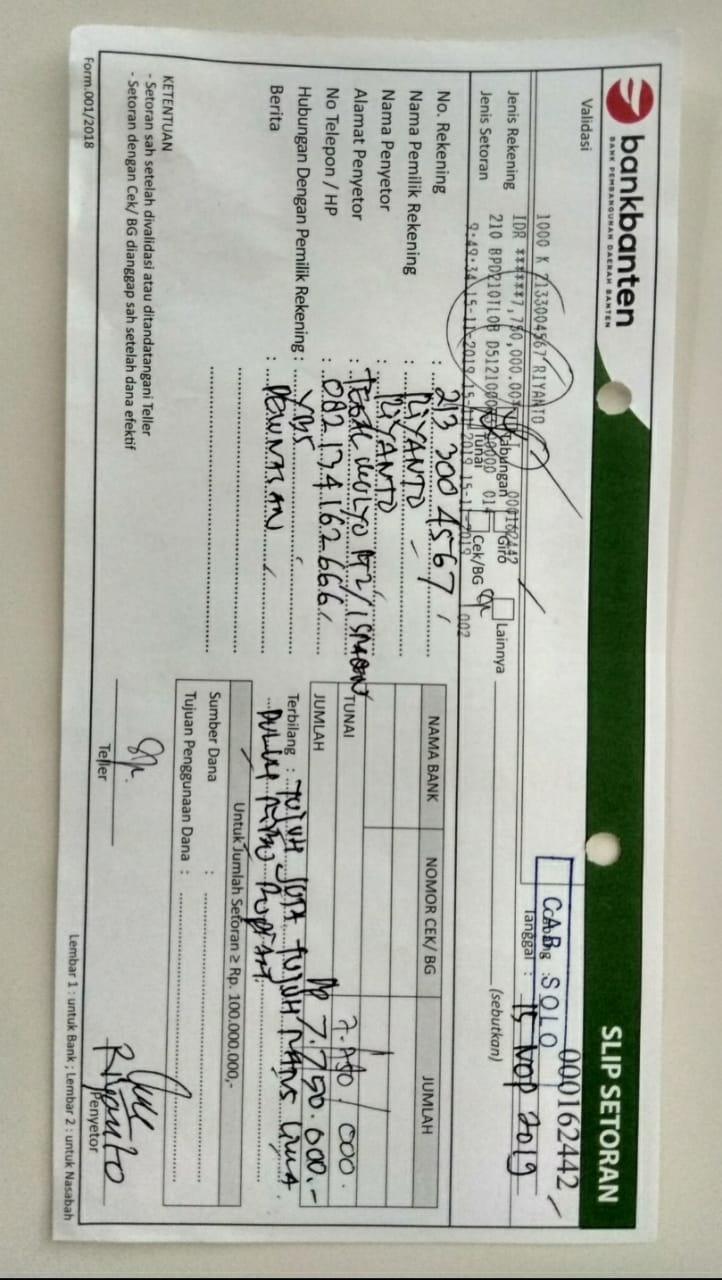 bankbanten
BANK PEMBANGUNAN DAERAH BANTEN
SLIP SETORAN
000162442
Validasi
CAB. SOLO
Cabang :
Tanggal : 15 Nop 2019
1000 K 2133004567 RIYANTO
IDR ******7,750,000.00 000162442
210 BPD210TL08 014
9:49:34 15-11-2019 15-11-2019 15-11-2019 002
Jenis Rekening Tabungan Giro Lainnya (sebutkan)
Jenis Setoran Tunai Cek/BG
No. Rekening : 213 300 4567
Nama Pemilik Rekening : RIYANTO
Nama Penyetor : RIYANTO
Alamat Penyetor : TEGAL MULYO
No Telepon / HP : 082134162666
Hubungan Dengan Pemilik Rekening : YBS
Berita : PELUNASAN
NAMA BANK NOMOR CEK/ BG JUMLAH
TUNAI 7.750.000.
JUMLAH Rp 7.750.000.-
Terbilang : TUJUH JUTA TUJUH RATUS LIMA
PULUH RIBU RUPIAH
Untuk Jumlah Setoran ≥ Rp. 100.000.000,-
Sumber Dana :
Tujuan Penggunaan Dana :
KETENTUAN
- Setoran sah setelah divalidasi atau ditandatangani Teller
- Setoran dengan Cek/ BG dianggap sah setelah dana efektif
Teller
Riyanto
Penyetor
Form.001/2018
Lembar 1 : untuk Bank ; Lembar 2 : untuk Nasabah